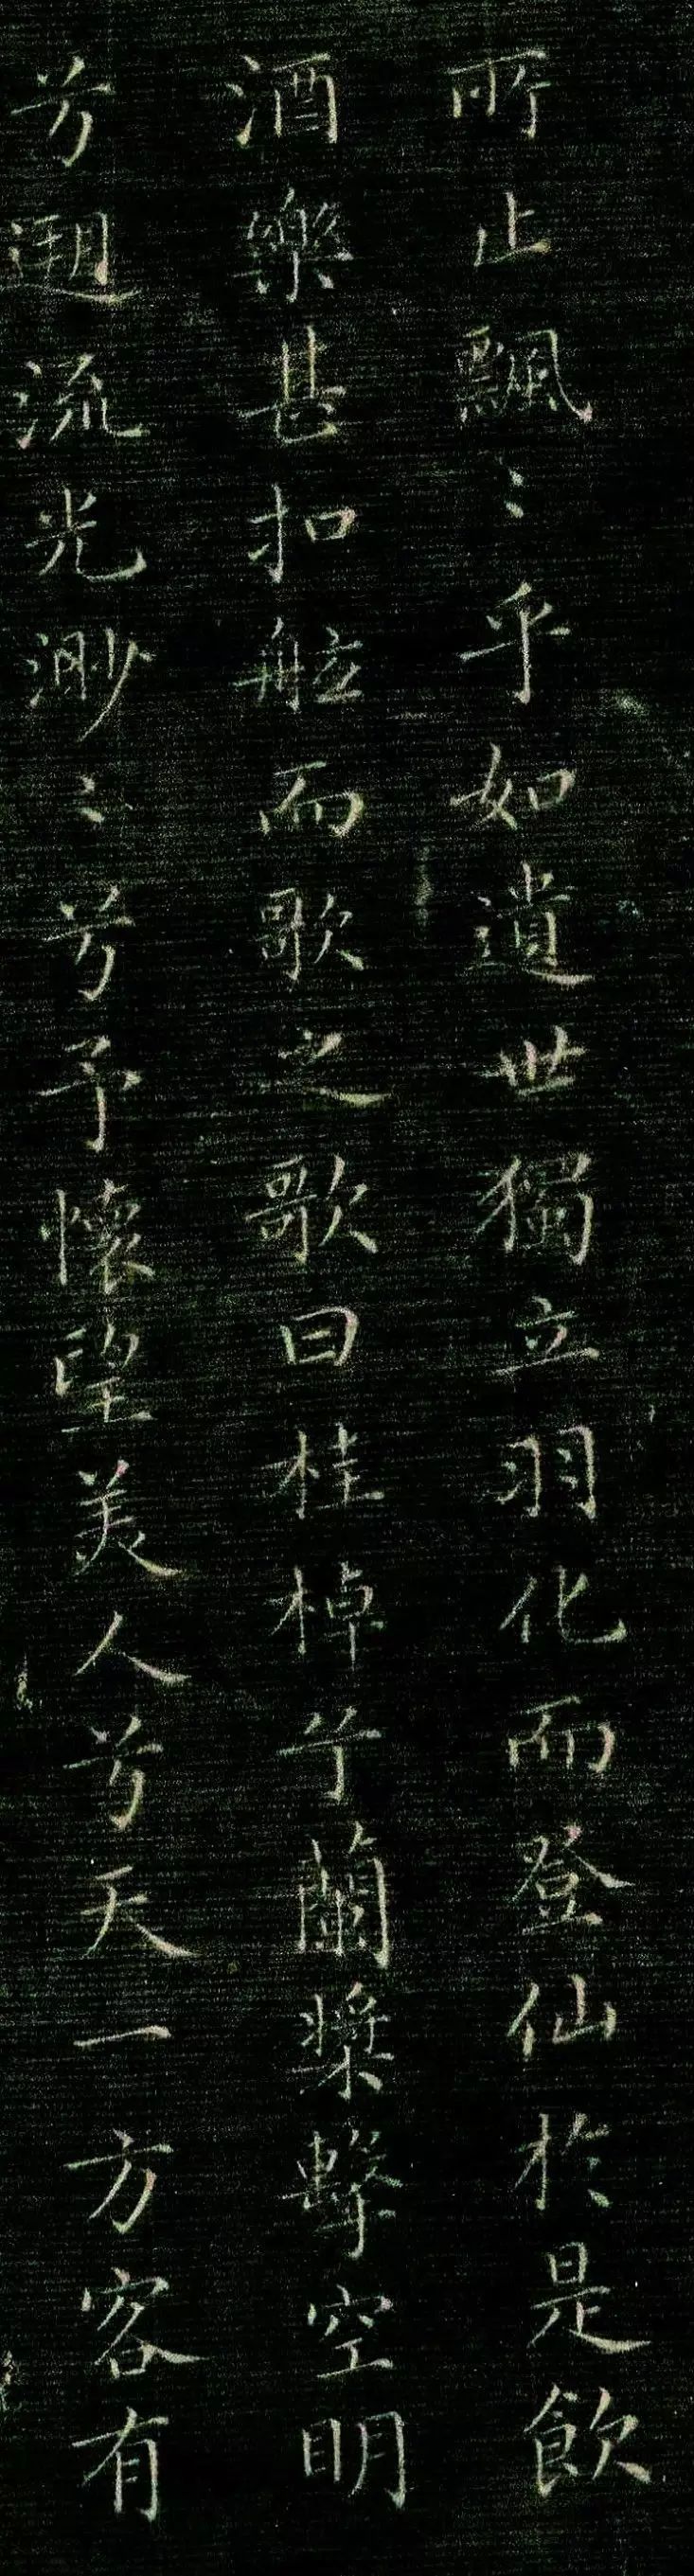 所止飄〻乎如遺世獨立羽化而登仙於是飲
酒樂甚扣舷而歌之歌曰桂棹兮蘭槳擊空明
兮遡流光渺〻兮予懷望美人兮天一方客有